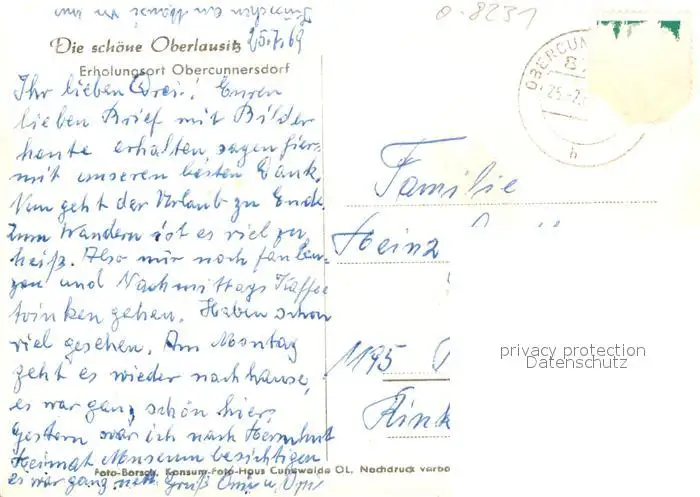 25.7.69
o-8231
Die schöne Oberlausitz
Erholungsort Obercunnersdorf
OBERCUN
25.-7.
h
Ihr lieben Drei! Euren
lieben Brief mit Bilder
heute erhalten, sagen hier-
mit unseren besten Dank.
Nun geht der Urlaub zu Ende.
Zum Wandern ist es viel zu
heiß. Also nur noch faulen-
zen und Nachmittags Kaffee
trinken gehen. Haben schon
viel gesehen. Am Montag
geht es wieder nach hause,
es war ganz schön hier,
Gestern war ich nach Herrnhut
Heimat Museum besichtigen
es war ganz nett. Gruß Oma u. Opa
Familie
Heinz
1195
privacy protection
Datenschutz
Foto-Borsch, Konsum-Foto-Haus Cunewalde OL, Nachdruck verbo